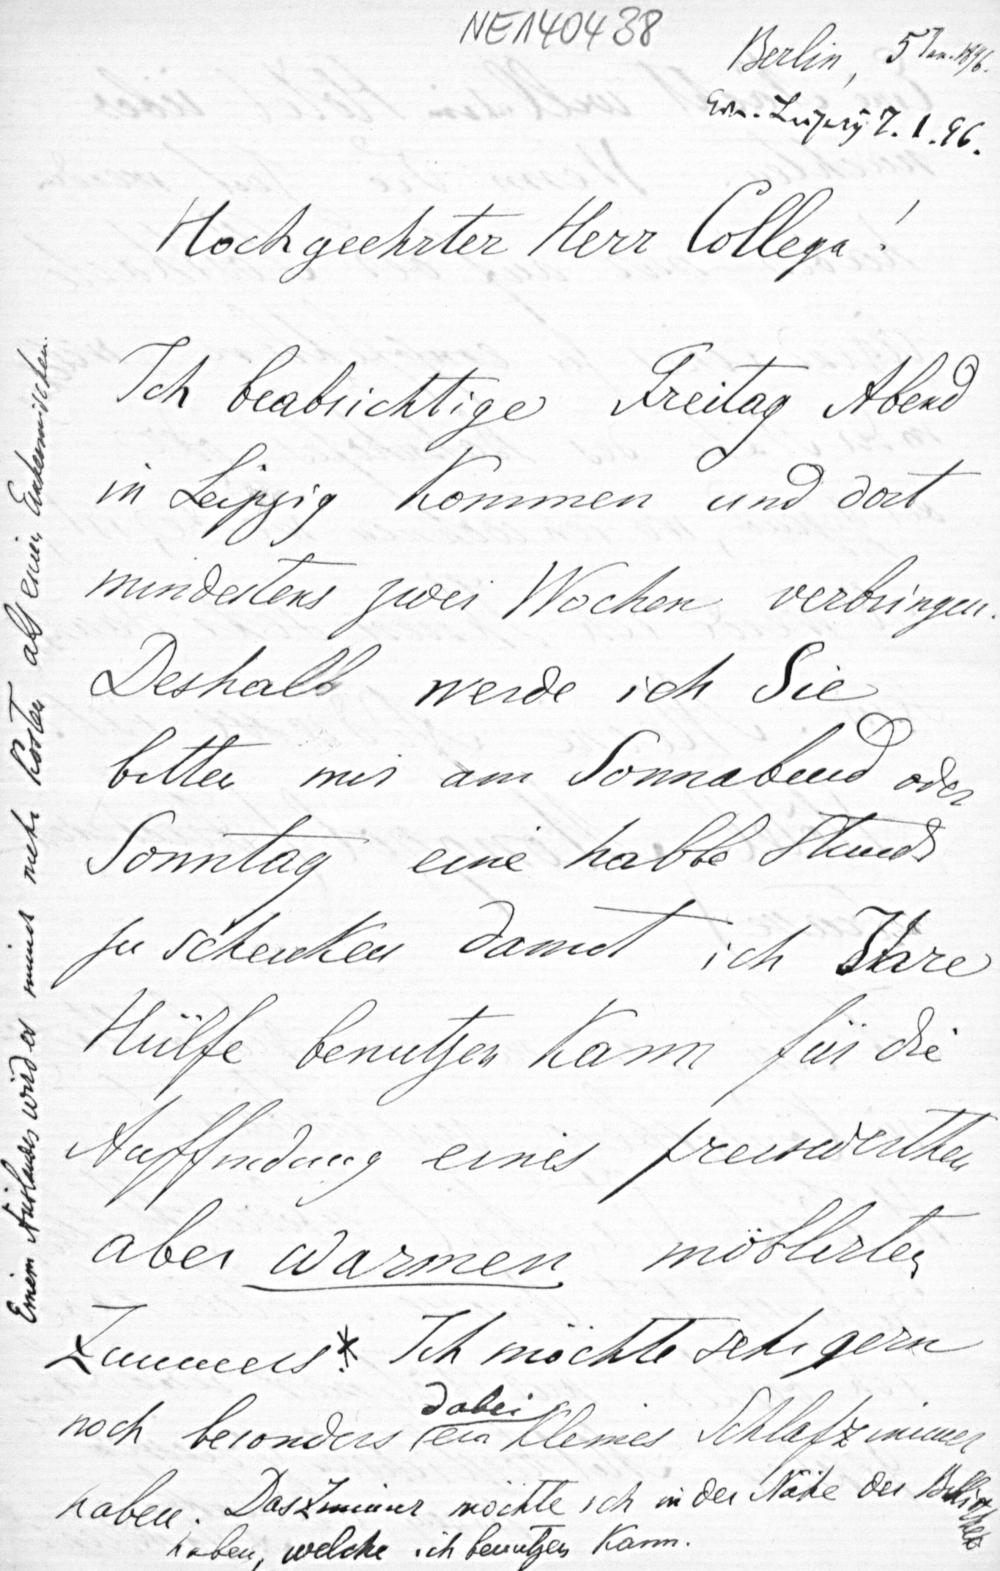 NE140438
Berlin, 5 Jan. 1896.
Erh. Leipzig 7. 1. 96.
Hochgeehrter Herr Collega!
Ich beabsichtige Freitag Abend
in Leipzig Kommen und dort
mindestens zwei Wochen verbringen.
Deshalb werde ich Sie
bitten mir am Sonnabend oder
Sonntag eine halbe Stunde
zu schenken damit ich Ihre
Hülfe benutzen kann für die
Auffindung eines preiswerthen
aber warmen möblirten
Zimmers* Ich möchte sehr gern
noch besonders dabei ein kleines Schlafzimmer
haben. Das Zimmer möchte ich in der Nähe der Bibliothek
haben, welche ich benutzen kann.
Einem Ausländer wird es immer mehr kosten als einem Einheimischen.